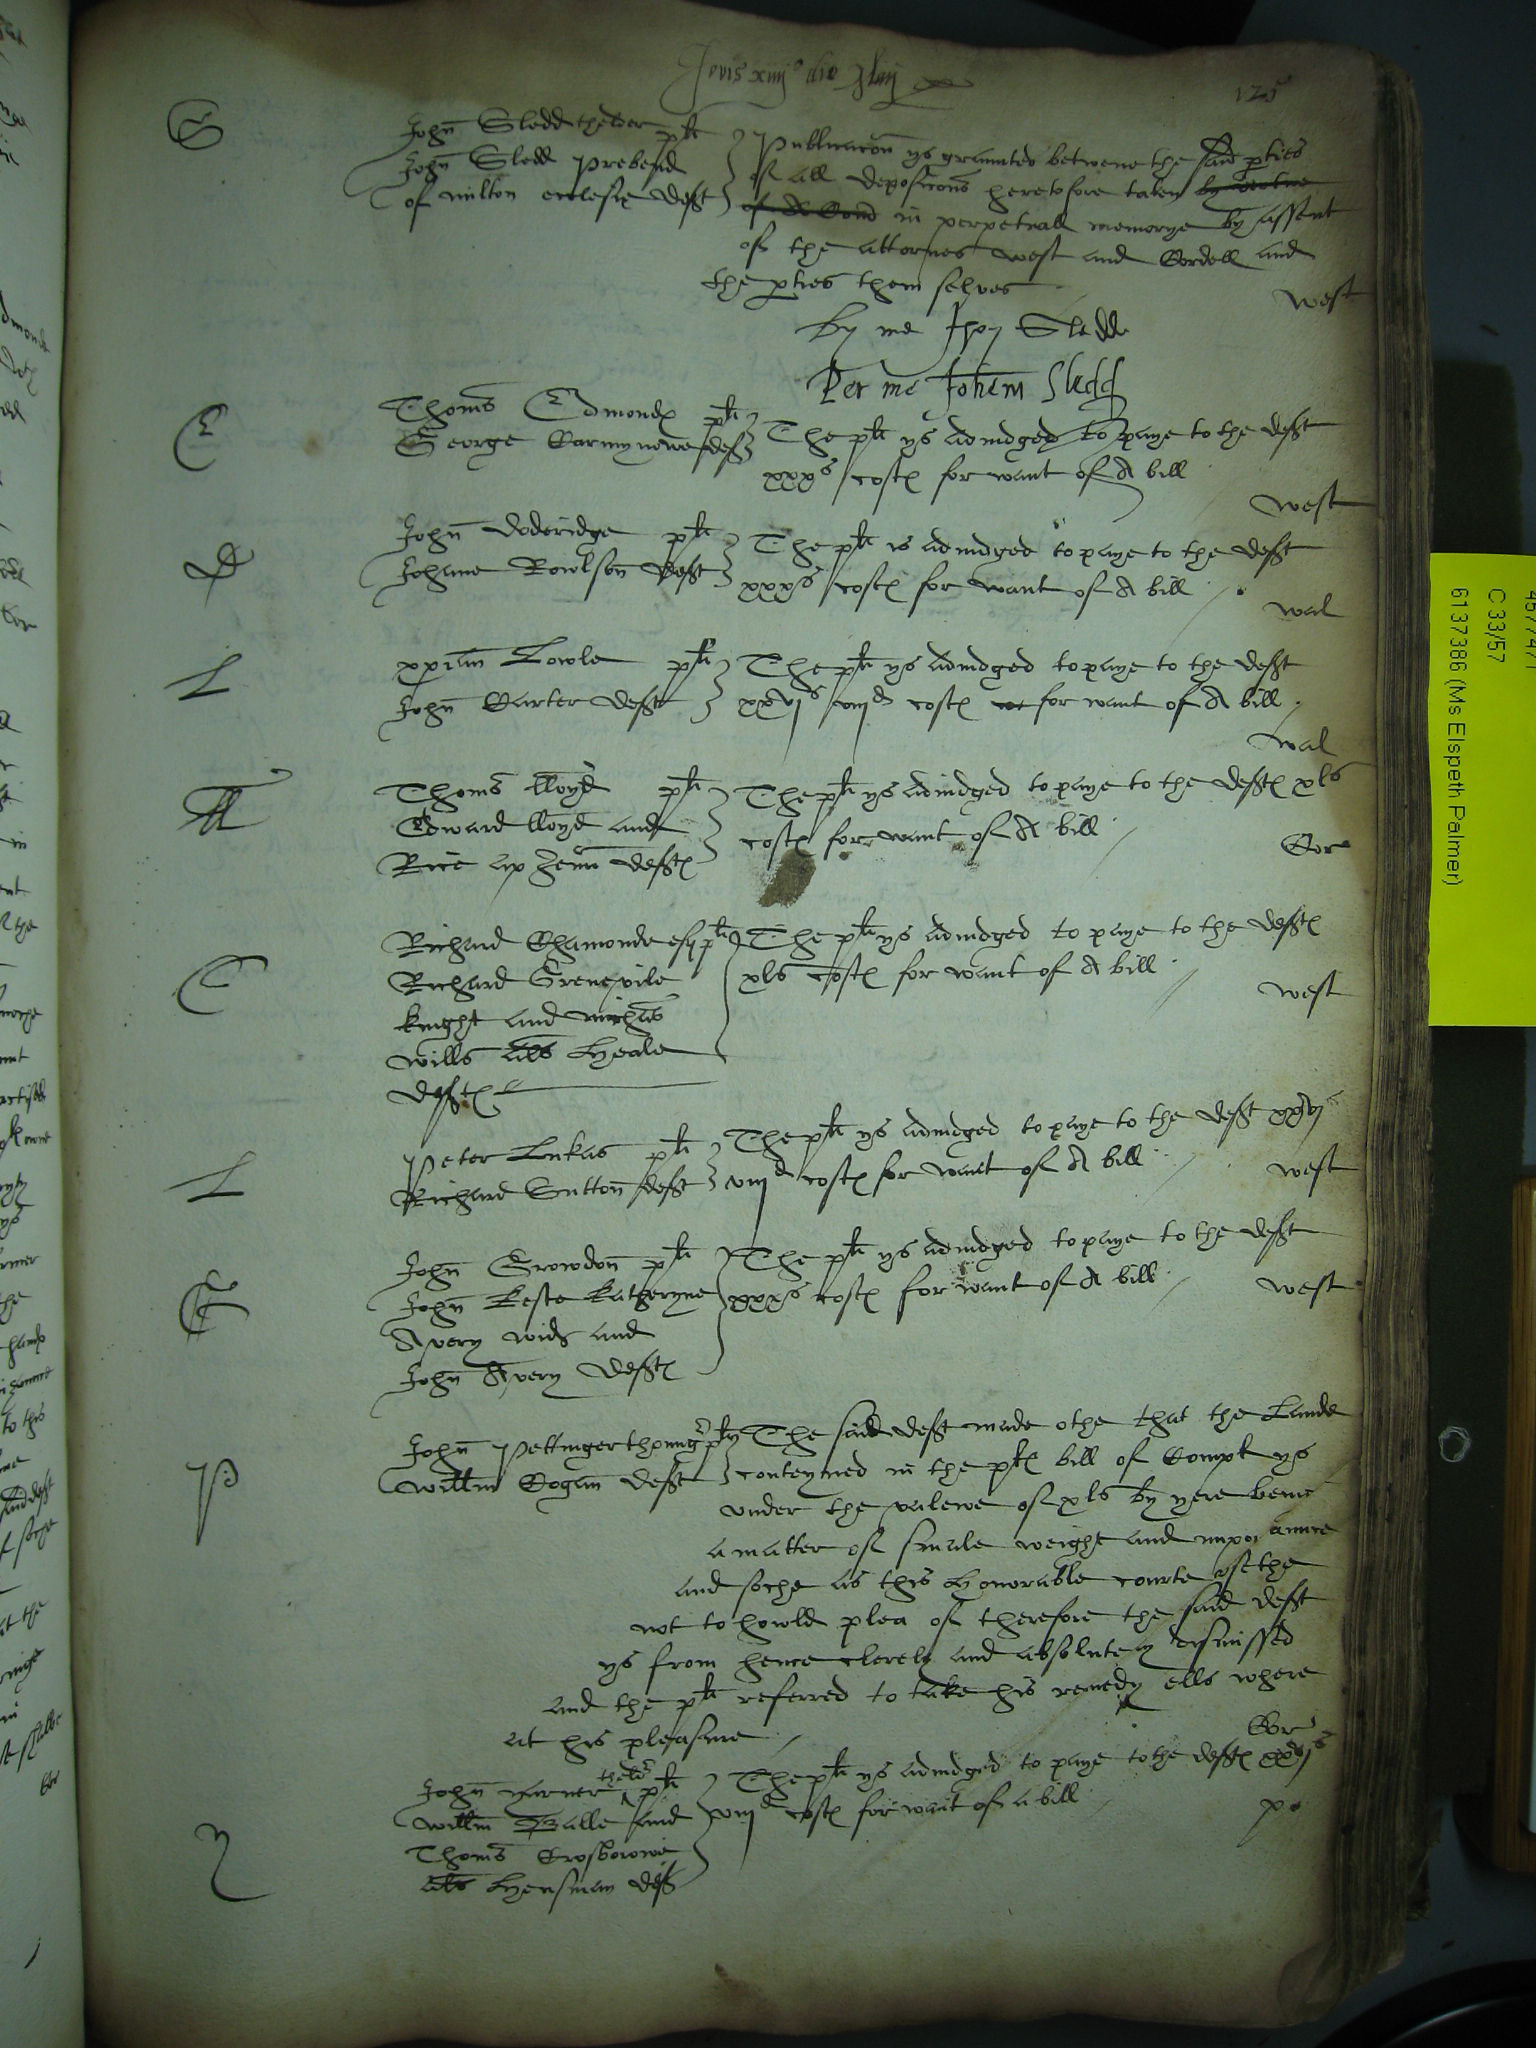 Jovis xiiijo die Maij
125
S
John Sledd thelder plt
John Sledd prebend
of milton ecclesie Deft
Publicacon ys graunted betwene the said pties
of all deposicons heretofore taken by vertue
of A Comd in perpetuall memorye by assent
of the attornes west and Cordell and
the pties them selves
west
By me Jhon Sledde
Per me Johem Sledd
E
Thoms Edmonds plt
George Carmynowe deft
The plt ys adiudged to paye to the deft
xxxs costes for want of A bill
west
D
John Doderidge plt
Johane Rowlson Deft
The plt is adiudged to paye to the deft
xxxs costes for want of A bill
wal
L
xpian Lowle plt
John Carter Deft
The plt ys adiudged to paye to the deft
xxvjs viijd costes for want of A bill
wal
ff
Thoms lloyd plt
Edward lloyd and
Rice ap Jenn deftes
The plt ys adiudged to paye to the deftes xls
costes for want of A bill
Cor
C
Richard Chamonde esq plt
Richard Grenevile
knight and michas
wills als Heale
deftes
The plt ys adiudged to paye to the deftes
xls costes for want of A bill
west
L
Peter Lukas plt
Richard Sutton deft
The plt ys adiudged to paye to the deft xxvjs
viijd costes for want of A bill
west
G
John Growdon plt
John Keste Katheryne
Avery wid and
John Avery Deftes
The plt ys adiudged to paye to the deft
xxxs costes for want of A bill
west
P
John Pettinger the pltes
Willm Cogan Deft
The said deft made othe that the Lande
conteyned in the pltes bill of Complt ys
under the valewe of xls by yere beinge
a matter of smale weight and importaunce
and soche as this honorable courte usethe
not to howld plea of therefore the said deft
ys from hence clerely and absolutely dismissed
and the plt referred to take his remedy ells where
at his pleasure
Cor
John yarner thelder plt
Willm Balle and
Thoms Crosborowe
als Hensman deft
The plt ys adiudged to paye to the deftes xxvjs
viijd costes for want of a bill
po
Y
457747
C 33/57
6137386 (Ms Elspeth Palmer)